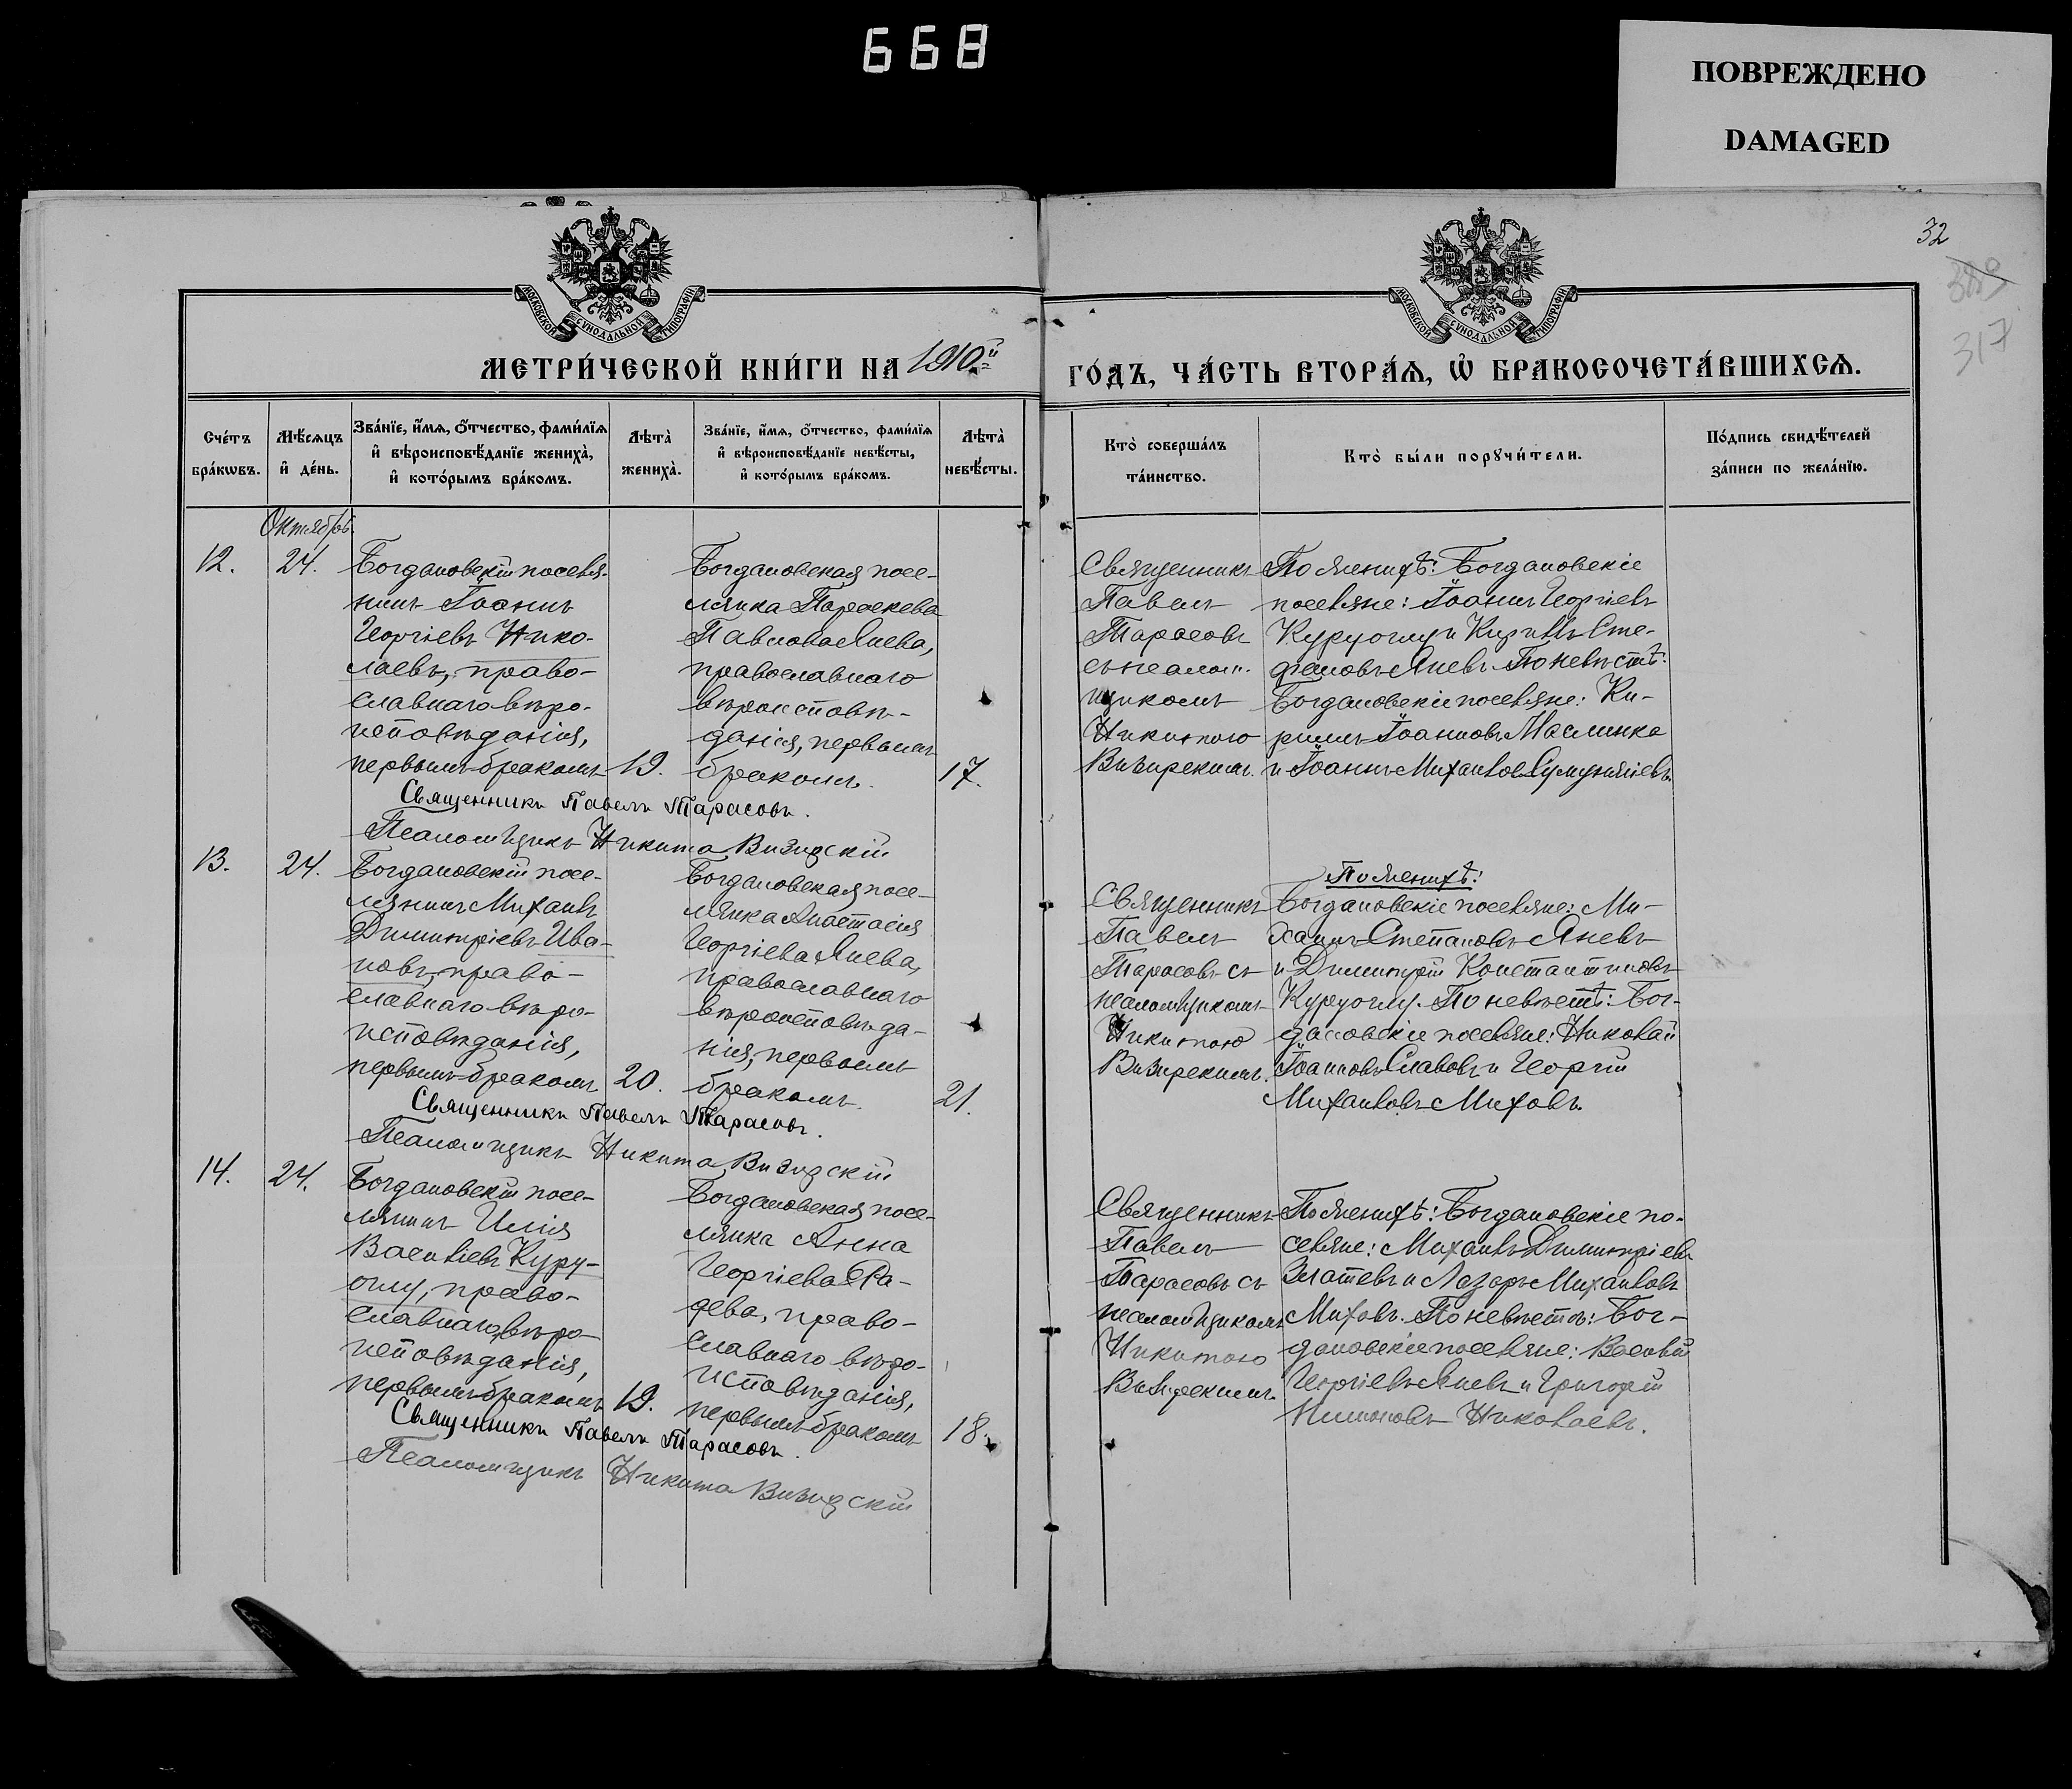 668
ПОВРЕЖДЕНО
DAMAGED
32
389
317
МОСКОВСКОЙ СУНОДАЛЬНОЙ ТИПОГРАФІИ
МОСКОВСКОЙ СУНОДАЛЬНОЙ ТИПОГРАФІИ
МЕТРИ́ЧЕСКОЙ КНИ́ГИ НА 1910й
ГО́ДЪ, ЧА́СТЬ ВТОРА́Ѧ, Ѡ҆ БРАКОСОЧЕТА́ВШИХСѦ.
Сче́тъ бра́кѡвъ.
Мѣ́сѧцъ и҆ де́нь.
Зва́нїе, и҆́мѧ, ѻ҆́тчество, фами́лїѧ
и҆ вѣроисповѣ́данїе жениха̀,
и҆ кото́рымъ бра́комъ.
Лѣта̀ жениха̀.
Зва́нїе, и҆́мѧ, ѻ҆́тчество, фами́лїѧ
и҆ вѣроисповѣ́данїе невѣ́сты,
и҆ кото́рымъ бра́комъ.
Лѣта̀ невѣ́сты.
Кто̀ соверша́лъ
та́инство.
Кто̀ бы́ли порꙋчи́тели.
По́дпись свидѣ́телей
за́писи по жела́нїю.
Октябрь.
12.
24.
Богдановскій поселя-
нинъ Іоаннъ
Георгіевъ Нико-
лаевъ, право-
славнаго вѣро-
исповѣданія,
первымъ бракомъ
19.
Богдановская посе-
лянка Параскева
Павлова Янева,
православнаго
вѣроисповѣ-
данія, первымъ
бракомъ.
17.
Священникъ
Павелъ
Тарасовъ
съ псалом-
щикомъ
Никитою
Визирскимъ.
По женихѣ: Богдановскіе
поселяне: Іоаннъ Георгіевъ
Куруоглу и Кириллъ Сте-
фановъ Яневъ. По невѣстѣ:
Богдановскіе поселяне: Ки-
риллъ Іоанновъ Маслинка
и Іоаннъ Михаиловъ
Священникъ Павелъ Тарасовъ.
Псаломщикъ Никита Визирскій
13.
24.
Богдановскій посе-
лянинъ Михаилъ
Димитріевъ Ива-
новъ, право-
славнаго вѣро-
исповѣданія,
первымъ бракомъ
20.
Богдановская посе-
лянка Анастасія
Георгіева Янева,
православнаго
вѣроисповѣда-
нія, первымъ
бракомъ.
21.
Священникъ
Павелъ
Тарасовъ съ
псаломщикомъ
Никитою
Визирскимъ.
По женихѣ:
Богдановскіе поселяне: Ми-
хаилъ Степановъ Яневъ
и Димитрій Константиновъ
Куруоглу. По невѣстѣ: Бог-
дановскіе поселяне: Николай
Іоанновъ Славовъ и Георгій
Михаиловъ Миховъ.
Священникъ Павелъ Тарасовъ.
Псаломщикъ Никита Визирскій
14.
24.
Богдановскій посе-
лянинъ Илія
Васильевъ Куру-
оглу, право-
славнаго вѣро-
исповѣданія,
первымъ бракомъ
19.
Богдановская посе-
лянка Анна
Георгіева Ра-
дева, право-
славнаго вѣро-
исповѣданія,
первымъ бракомъ
18.
Священникъ
Павелъ
Тарасовъ съ
псаломщикомъ
Никитою
Визирскимъ.
По женихѣ: Богдановскіе по-
селяне: Михаилъ Димитріевъ
Златевъ и Лазарь Михаиловъ
Миховъ. По невѣстѣ: Бог-
дановскіе поселяне: Василій
Георгіевъ Яневъ и Григорій
Николаевъ.
Священникъ Павелъ Тарасовъ.
Псаломщикъ Никита Визирскій